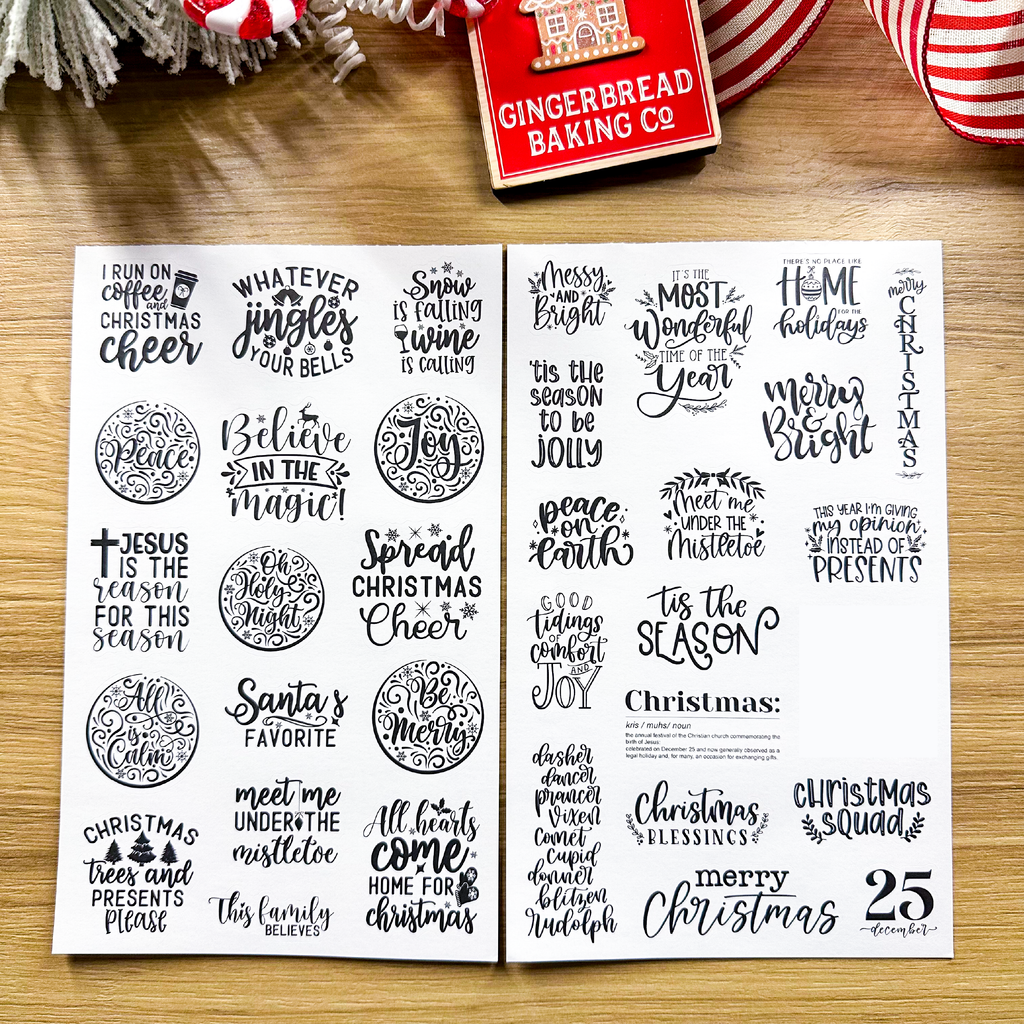 GINGERBREAD
BAKING CO
I RUN ON
coffee
and
CHRISTMAS
cheer
WHATEVER
jingles
YOUR BELLS
Snow
is falling
wine
is calling
Peace
Believe
IN THE
magic!
Joy
JESUS
IS THE
reason
FOR THIS
season
Oh
Holy
Night
Spread
CHRISTMAS
Cheer
All
is
Calm
Santa's
FAVORITE
Be
Merry
meet me
UNDER THE
mistletoe
CHRISTMAS
trees and
PRESENTS
please
This family
BELIEVES
All hearts
come
HOME FOR
christmas
Messy
AND
Bright
IT'S THE
MOST
Wonderful
TIME OF THE
Year
THERE'S NO PLACE LIKE
HOME
FOR THE
holidays
merry
CHRISTMAS
'tis the
season
to be
JOLLY
Merry
&
Bright
peace
on
earth
Meet me
UNDER THE
Mistletoe
THIS YEAR I'M GIVING
my opinion
INSTEAD OF
PRESENTS
GOOD
tidings
OF
comfort
AND
JOY
tis the
SEASON
Christmas:
kris / muhs/ noun
the annual festival of the Christian church commemorating the
birth of Jesus:
celebrated on December 25 and now generally observed as a
legal holiday and, for many, an occasion for exchanging gifts.
dasher
dancer
prancer
vixen
comet
cupid
donner
blitzen
rudolph
Christmas
BLESSINGS
christmas
squad
merry
Christmas
25
december